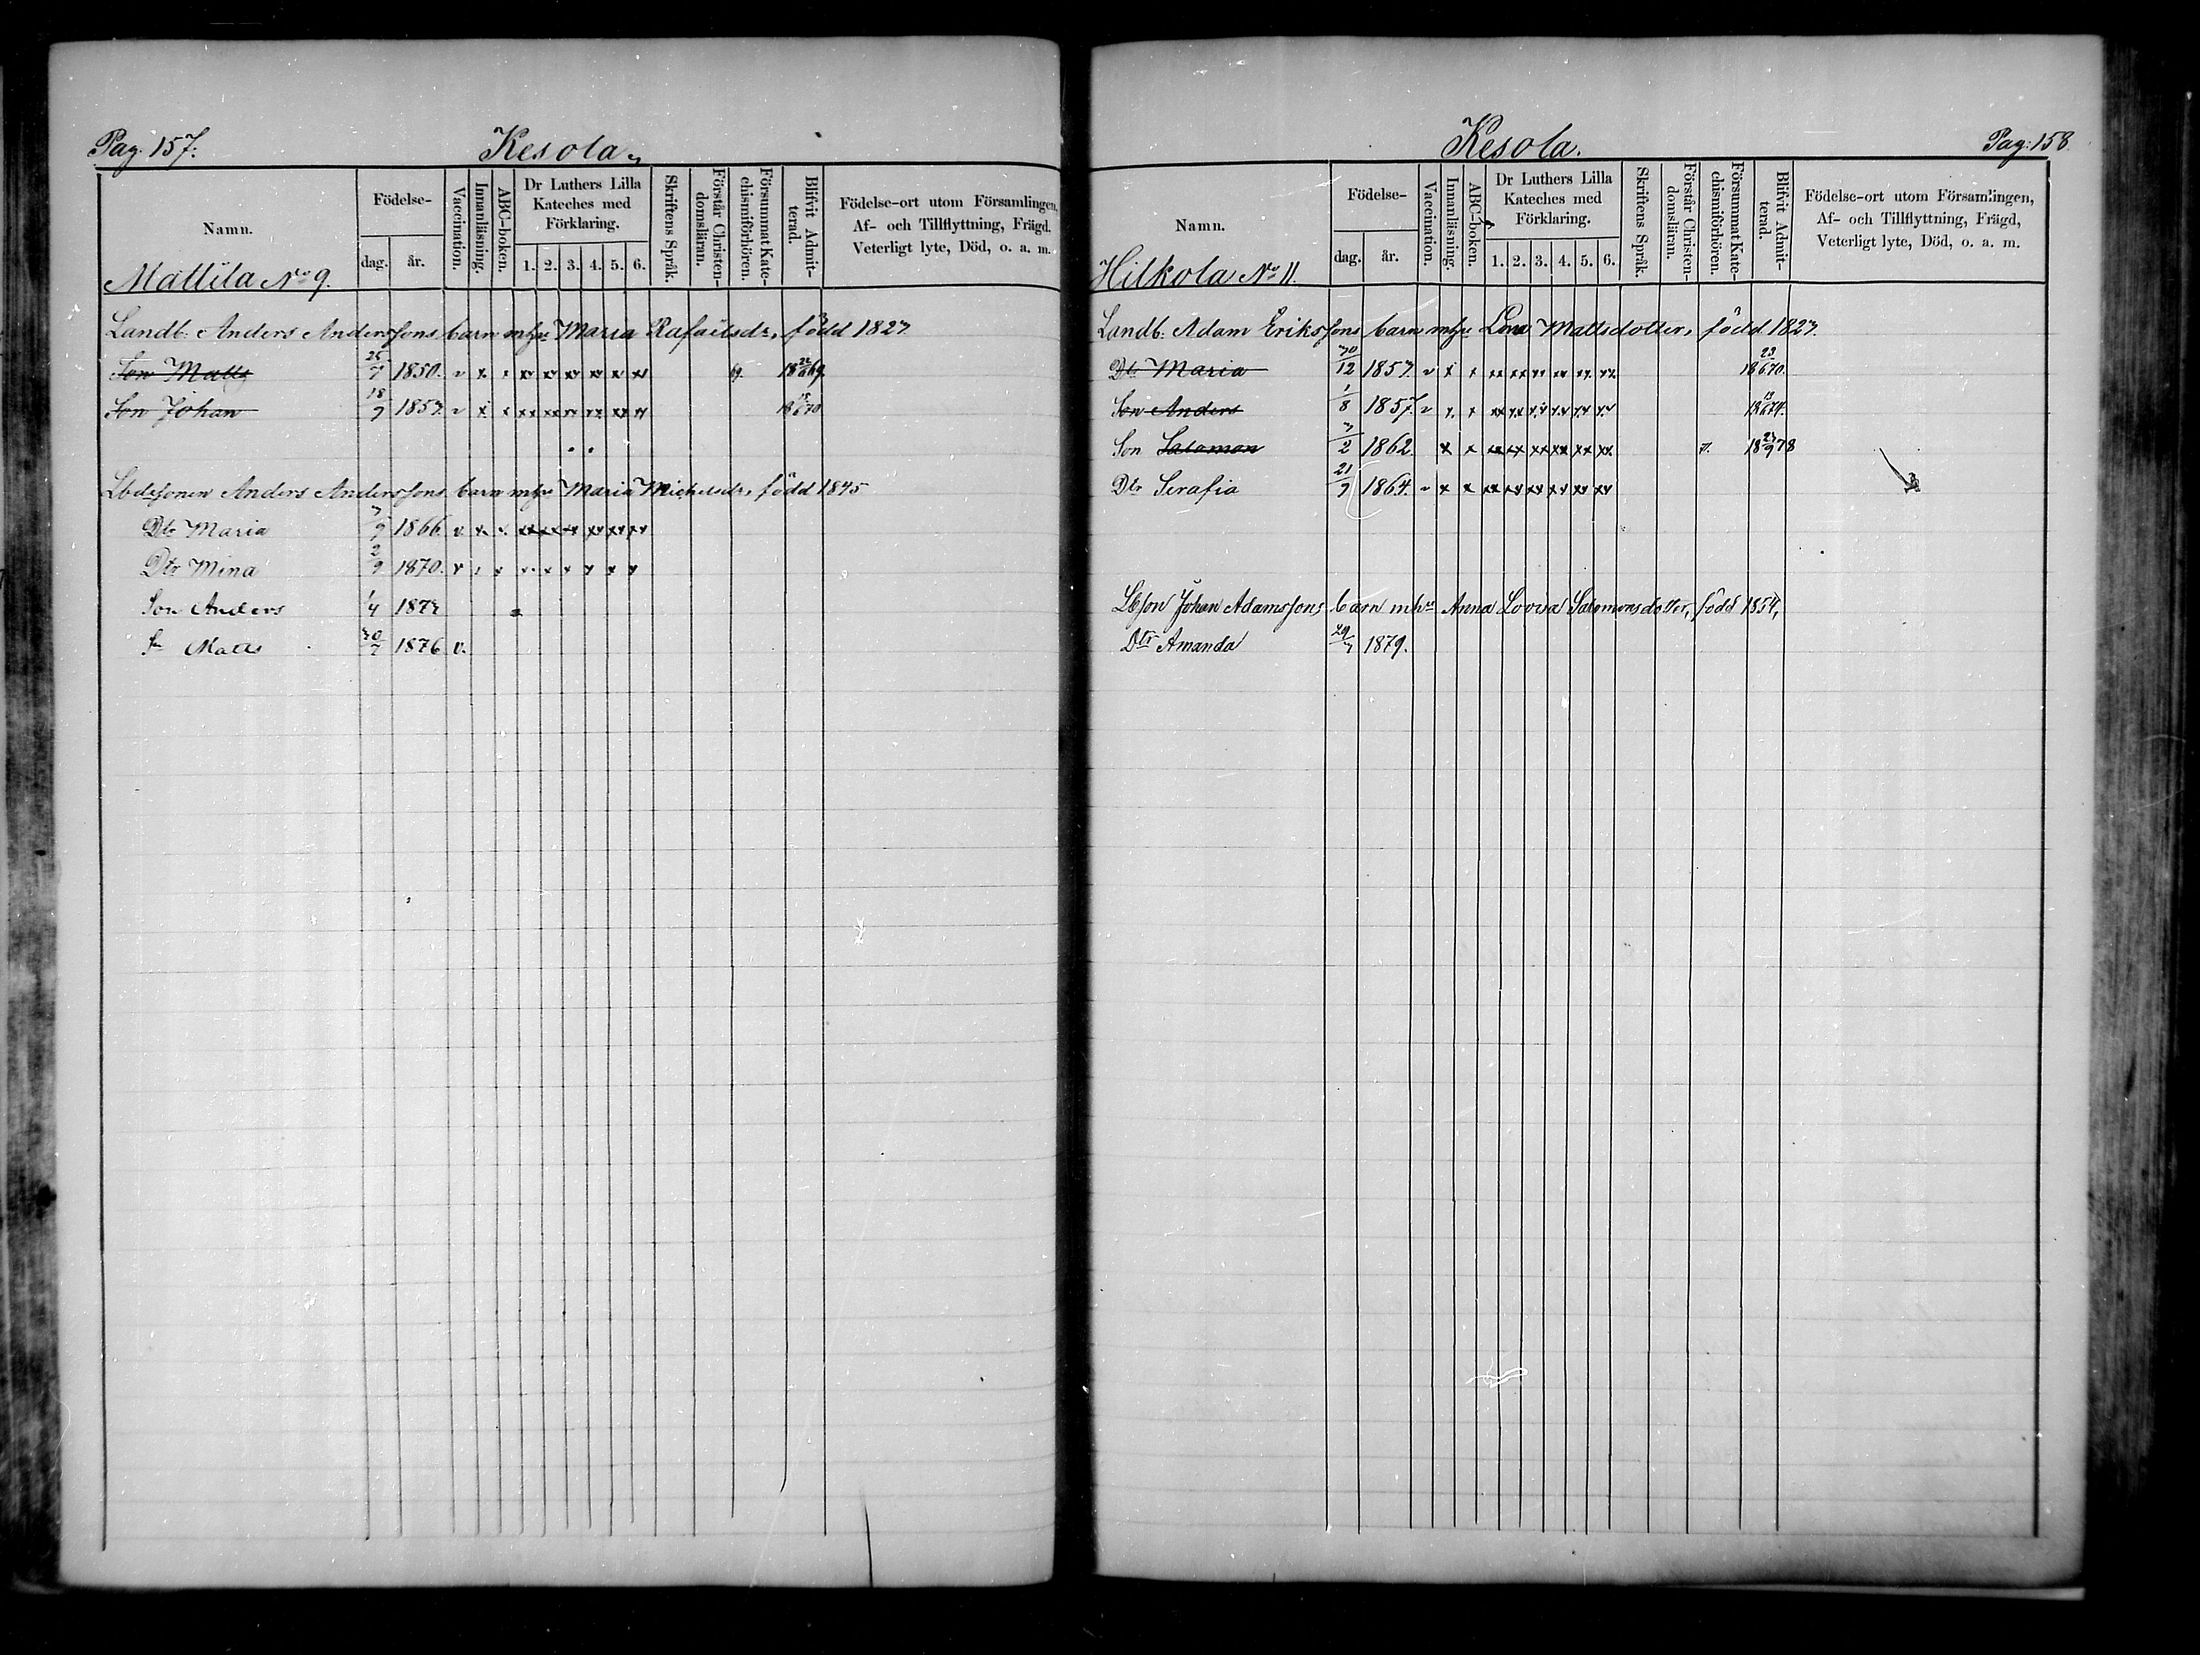 Pag. 157.
Kesola.
Namn.
Födelse-
dag.
år.
Vaccination.
Innanläsning.
ABC-boken.
Dr Luthers Lilla Kateches med Förklaring.
1. 2. 3. 4. 5. 6.
Skriftens Språk.
Förstår Christendomsläran.
Försummat Katechismiförhören.
Blifvit Admitterad.
Födelse-ort utom Församlingen,
Af- och Tillflyttning, Frägd,
Veterligt lyte, Död, o. a. m.
Mattila No 9.
Landb. Anders Anderssons barn mhu Maria Rafaelsdr, född 1827
Son Matts 25/7 1850. v x x xx xx xx xx xx 69. 1869.
Son Johan 18/9 1853. v x x xx xx xx xx xx xx 1870
Lbdssonen Anders Anderssons barn mhu Maria Michelsdr, född 1845
Dtr Maria 7/9 1866 v x x xx xx xx xx xx xx
Dtr Mina 2/9 1870. v x x x x x x x
Son Anders 1/4 187
Sn Matts 30/7 1876 v.
Pag. 158
Kesola.
Namn.
Födelse-
dag.
år.
Vaccination.
Innanläsning.
ABC-boken.
Dr Luthers Lilla Kateches med Förklaring.
1. 2. 3. 4. 5. 6.
Skriftens Språk.
Förstår Christendomsläran.
Försummat Katechismiförhören.
Blifvit Admitterad.
Födelse-ort utom Församlingen,
Af- och Tillflyttning, Frägd,
Veterligt lyte, Död, o. a. m.
Hilkola No 11.
Landb. Adam Erikssons barn mhu Lena Mattsdotter, född 1827.
Dtr Maria 30/12 1853. v x x xx xx xx xx xx xx 18 23/6 70.
Son Anders 1/8 1857. v x x xx xx xx xx xx xx 1874.
Son Salomon 7/2 1862. x x xx xx xx xx xx xx 18 23/9 78
Dtr Serafia 21/7 1864. v x x xx xx xx xx xx xx
Lbson Johan Adamssons barn mhu Anna Lovisa Salomonsdotter, född 1854,
Dtr Amanda 29/7 1879.